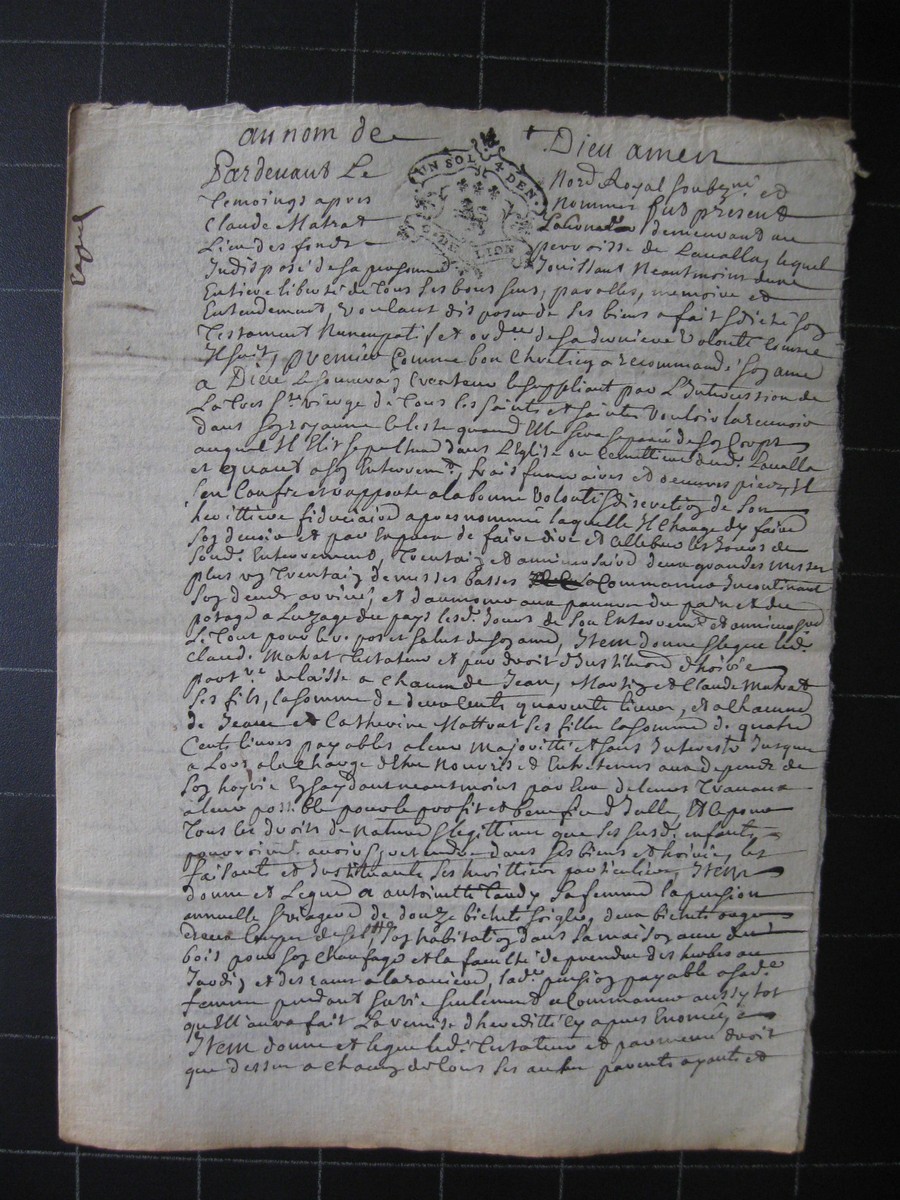 au nom de Dieu amen
UN SOL 4 DEN.
G. DE LION
Pardevant Le Nore Royal soubzné et
Temoings apres nommes fut présent
Claude Matrat demeurant au
Lieu des fonds perroisse de Lavalla, lequel
Indisposé de sa personne Jouissant Neantmoins dune
Entiere liberté de tous ses bons sens, parolles, memoire et
Entendement, voulant disposer de ses biens a fait & dicté soy
Testament Nuncupatif et ordre de sa derniere volonté comme
Il suit, premier comme bon Chretien a recommandé soy ame
a Dieu le souverain Createur le suppliant par L'Intercession de
La tres Ste vierge de tous les saints et saintes vouloir la recevoir
dans soy royaume celeste quand Elle sera separée de soy Corps
auquel Il Elit sepulture dans L'Eglise ou Cemitiere dud. Lavalla
et quant a soy Enterremt, frais funeraires et oeuvres pies, Il
sen Confie et rapporte a la bonne volonté & discretion de son
heritiere fiduciaire apres nommée laquelle Il charge dy faire
soy devoir et par Exprez de faire dire et cellebrer les Jours de
sond. Enterrement, Trentain et annive saire deux grandes messes
plus un Trentain de messes basses a Commancer Incontinant
soy deces arrivé, et d'aumoner aux pauvres du pain et du
potage a Luzage du pays lesd. Jours de son Enterremt et
Le Tout pour le repos et salut de soy ame, Item donne & legue led.
Claude Matrat testateur et par droit d'Institution d'hoirie
partre delaisse a chacun de Jean, Martin et Claude Matrat
ses fils, la somme de deux cents quarente livres, et a chacune
de Jeane et Catherine Mattrat ses filles la somme de quatre
Cents livres payables a leur majorité et sans Interests Jusque
a Lors a la charge d'Etre Nourris et Entretenus aux depends de
soy hoyrie En aydant neantmoins par Eux de leurs Travaux
a leur possible pour le profit et benefice d'Icelle, Et ce pour
Tous les droits de Nature & legittime que ses susd. enfants
pourroient avoir & pretendre dans ses biens et hoirie, les
faisant et Instituants ses heritiers particuliers, Item
donne et Legue a antoinette Tardy sa femme la pension
annuelle & viagere de douze bichets seigle, deux bichets orge
deux Coupes de sel, soy habitation dans sa maison avec du
bois pour soy chaufage et la faculté de prendre des herbes au
Jardin et des raves a la raviere, lade pension payable a sade
femme pendant sa vie seulement a Commancer aussytot
qu'Ell' aura fait La remise d'heredité cy apres Enoncée,
Item donne et legue led. Testateur et par meme droit
que dessus a chacun de tous ses autres parents ayants et